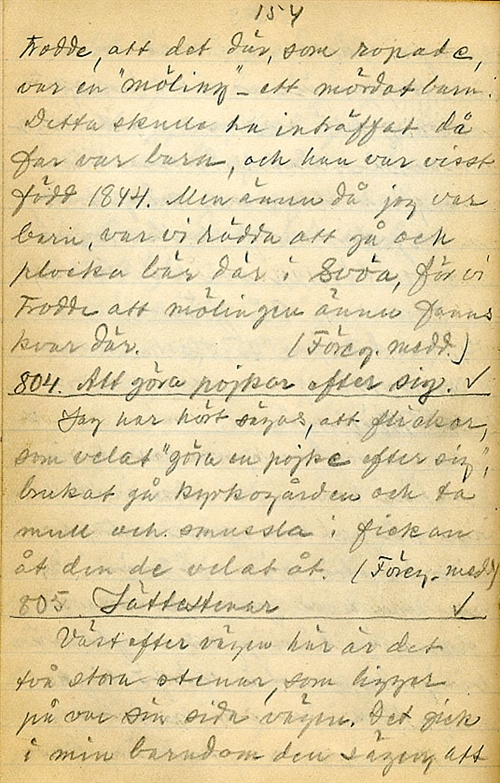 154
trodde, att det där, som ropade,
var en "möling" - ett mördat barn.
Detta skulle ha inträffat då
far var barn, och han var visst
född 1844. Men ännu då jag var
barn, var vi rädda att gå och
plocka bär där i Svöa, för vi
trodde att mölingen ännu fanns
kvar där. (Föreg. medd.)
804. Att göra pojkar efter sig. ✓
Jag har hört sägas, att flickor,
som velat "göra en pojke efter sig",
brukat gå kyrkogården och ta
mull och smussla i fickan
åt den de velat åt. (Föreg. medd.)
805 Jättestenar ✓
Väst efter vägen här är det
två stora stenar, som ligger
på var sin sida vägen. Det gick
i min barndom den sägen att